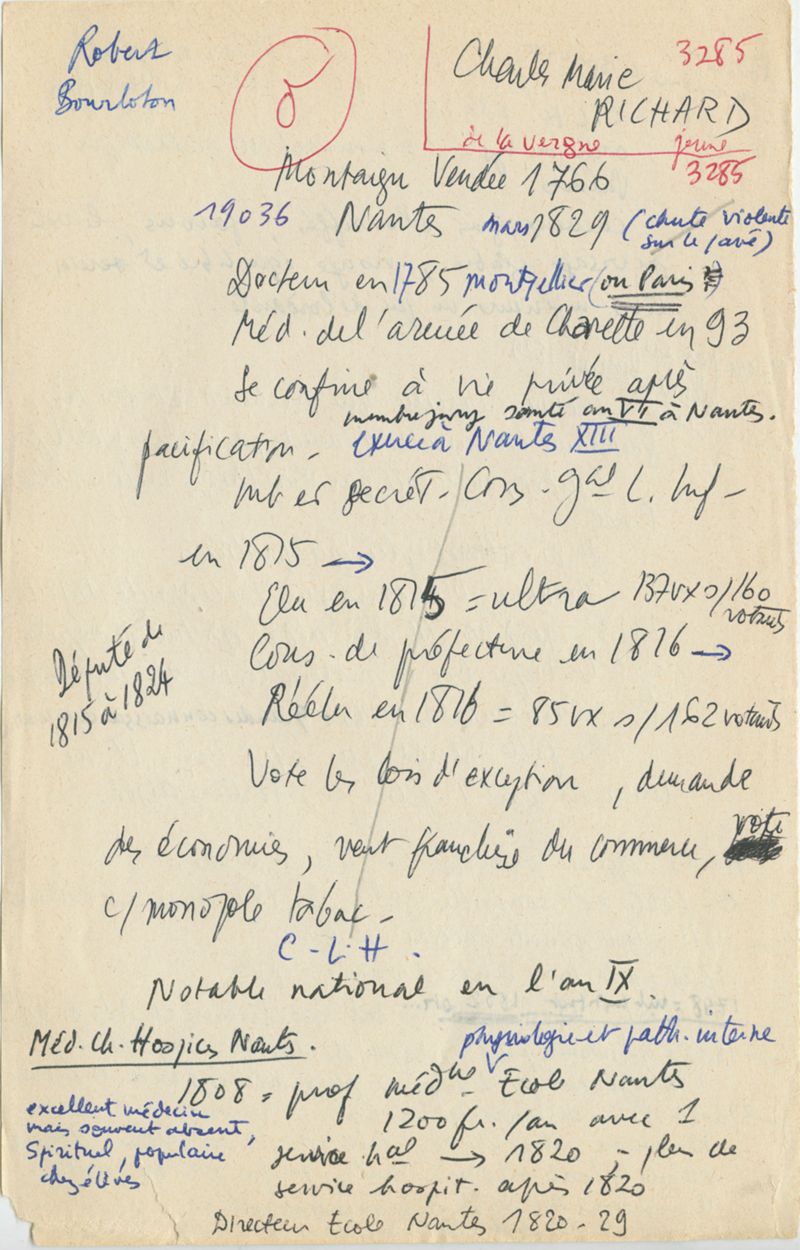 Robert
Bourloton
Charles Marie
3285
RICHARD
de la vergne jeune
3285
Montaigu Vendée 1766
19036
Nantes mars 1829 (chute violente
sur le pavé)
Docteur en 1785 montpellier (ou Paris
Méd. de l'armée de Charette en 93
Se confine à vie privée après
membre jury santé an VI à Nantes.
pacification - exerce à Nantes XIII
mb et secrét - Cons - gal L. Inf -
en 1815 →
Elu en 1815 = ultra 137 vx s/160
votants
Cons. de préfecture en 1816 →
Député de
1815 à 1824
Réélu en 1816 = 85 vx s/162 votants
Vote les lois d'exception, demande
des économies, veut franchise du commerce, vote
c/ monopole tabac -
C - L - H .
Notable national en l'an IX.
Méd. Ch. Hospices Nantes.
physiologie et path. interne
1808 = prof méd - Ecole Nantes
1200 fr. /an avec 1
service hal → 1820 - plus de
service hospit. après 1820
excellent médecin
mais souvent absent,
Spirituel, populaire
chez élèves
Directeur Ecole Nantes 1820-29